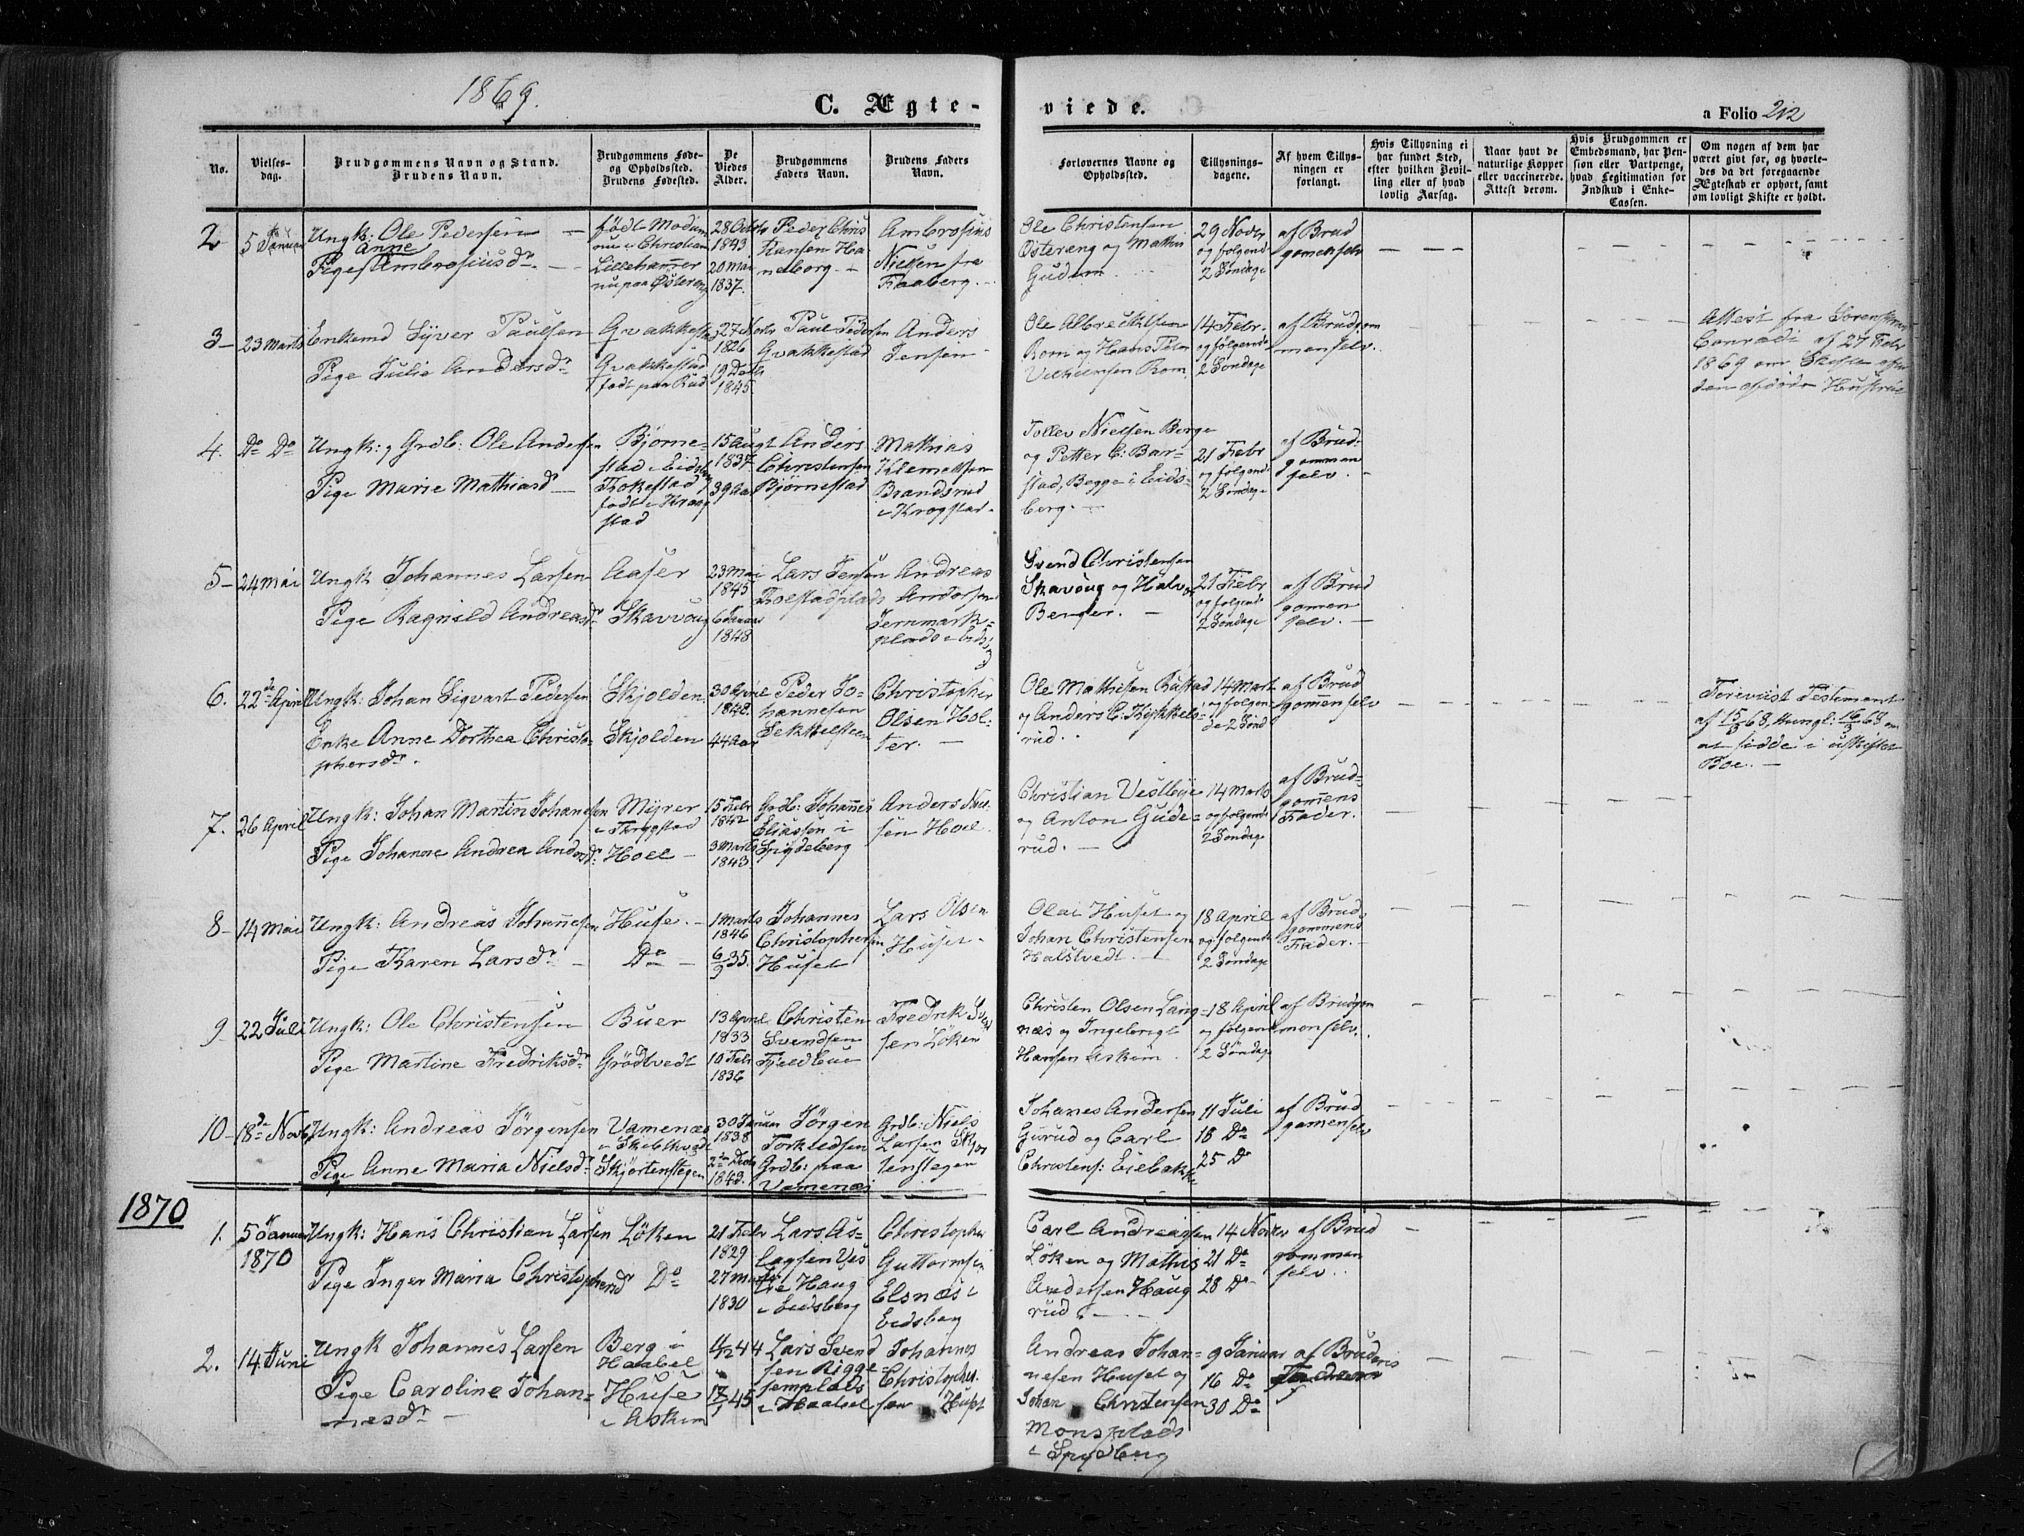 1869.
C. Ægte-
viede.
a Folio 212
No.
Vielses-
dag.
Brudgommens Navn og Stand.
Brudens Navn.
Brudgommens Føde-
og Opholdssted.
Brudens Fødested.
De
Viedes
Alder.
Brudgommens
Faders Navn.
Brudens Faders
Navn.
Forlovernes Navne og
Opholdssted.
Tillysnings-
dagene.
Af hvem Tillys-
ningen er
forlangt.
Hvis Tillysning ei
har fundet Sted,
efter hvilken Bevil-
ling eller af hvad
lovlig Aarsag.
Naar havt de
naturlige Kopper
eller vaccinerede.
Attest derom.
Hvis Brudgommen er
Embedsmand, har Pen-
sion eller Vartpenge,
hvad Legitimation for
Indskud i Enke-
Cassen.
Om nogen af dem har
været givt for, og hvorle-
des da det foregaaende
Ægteskab er ophørt, samt
om lovligt Skifte er holdt.
2
5 Januar
Ungk: Ole Pedersen
Anne
Pige Ambrosiusdr.
født Modum
nu i Christian
Lillehammer
nu paa Østereng
28 Octbr
1843
20 Mai
1837.
Peder Chris
tiansen Ha-
neborg
Ambrosius
Nielsen fra
Faaberg.
Ole Christensen
Østereng og Mathis
Gudim
29 Novbr
og følgende
2 Søndage
af Brud
gomen selv
3
23 Marts
Enkemd Syver Paulsen
Pige Julie Andersdr
Gvakkestad
Gvakkestad
født paa Rud
27 Novbr
1826
19 Decbr
1845.
Paul Pedersen
Gvakkestad
Anders
Jensen
Ole Albrethsen
Rom og Hans Peter
Vilhelmsen Rom.
14 Febr.
og følgende
2 Søndage
af Brudgom
men selv.
Attest fra Sorenskriver
Conradi af 27 Febr
1869 om Skifte efter
den afdøde Hustrue
4.
Do Do
Ungk: og Grdb: Ole Andersen
Pige Marie Mathiasdr
Bjørne-
stad i Eidsberg
Tokestad
født i Kraag
stad
15 Augt
1837
39 Aar
Anders
Christensen
Bjørnestad
Mathias
Klemetsen
Brandsrud
i Krogstad.
Tollev Nielsen Berge
og Petter C: Bar-
stad, Begge i Eids-
berg.
21 Febr
og følgende
2 Søndage
af Brud-
gommen
selv.
5
24 Mai
Ungk Johannes Larsen
Pige Ragnild Andreasdr.
Aaser
Skavoug
23 Mai
1845
6 Januar
1848
Lars Jensen
Tolstadplads
Andreas
Andersen
Jernmark-
plads i Eidsb
Svend Christensen
Skavoug og Halvor
Berger.
21 Febr
og følgende
2 Søndage
af Brud
gomen
selv.
6.
22de April
Ungk: Johan Sigvart Pedersen
Enke Anne Dorthea Christo-
phersdr.
Skjolden
Skjolden
30 April
1848.
44 Aar
Peder Jo-
hannesen
Sekkelsteen
Christopher
Olsen Hol-
ter.
Ole Mathisen Rustad
og Anders C. Kykkels-
rud.
14 Mart
og følgen-
de 2 Sønd
af Brud
gomen selv
Forevist Testament
at sidde i uskiftet
Boe.
7.
26 April
Ungk: Johan Martin Johansen
Pige Johanne Andrea Andersdr.
Myrer
i Trygstad
Hoel
15 Febr
1842
3 Marts
1843
Grdb: Johannes
Eliassen i
Spydeberg
Anders Niel-
sen Hoel.
Christian Vestbye
og Anton Gude-
rud.
14 Marts
og følgende
2 Søndage
af Brud-
gomens
Fader.
8
14 Mai
Ungk: Andreas Johannesen
Pige Karen Larsdr
Huse.
Do
1 Marts
1846
6/9 35.
Johannes
Christophersen
Huset
Lars Olsen
Huset
Olai Huset og
Johan Christensen
Halstvedt.
18 April
og følgende
2 Søndage
af Brud-
gommens
Fader.
9
22 Juli
Ungk: Ole Christensen
Pige Martine Fredriksdr
Buer
Grødtvedt
13 April
1833
10 Febr
1836
Christen
Svendsen
Fjeldbue
Fredrik Svend
sen Løken
Christen Olsen Lang-
næs og Ingebrigt
Hansen Askim.
18 April
og følgende
2 Søndage
af Brudgom
men selv.
10
18de Novbr
Ungk: Andreas Jørgensen
Pige Anne Maria Nielsdr
Vamenæs
i Skibthvedt
Skjørtenstegen
30 Januar
1838
1843.
Jørgen
Torkildsen
Grdb: paa
Vamenæs
Grdb: Niels
Larsen Skjør
tenstegen
Johanes Andersen
Gurud og Carl
Christens: Eiebakke
11 Juli
18 Do
25 Do
af Brud
gomen selv
1870
1.
5 Januar
1870
Ungk: Hans Christian Larsen
Pige Inger Maria Christophersdr
Løken
Do
21 Febr
1829
27 Marts
1830
Lars As-
lagsen Ves
tre Haug
i Eidsberg
Christopher
Guttormsen
Elsnæs i
Eidsberg
Carl Andreassen
Løken og Mathis
Andersen Haug
rud.
14 Novbr
21 Do
28 Do
af Brud
gommen
selv.
2.
14 Juni
Ungk Johannes Larsen
Pige Caroline Johan-
nesdr
Berg i
Haabøl
Huse
i Askim
4/12 44
17/1 45
Lars Svend
sen Rigge-
semplads
i Haabøl
Johannes
Christopher
sen Huset
Andreas Johan-
nesen Huset og
Johan Christensen
Monsplads
i Spydberg
9 Januar
16 Do
30 Do
af Brudens
Faderen